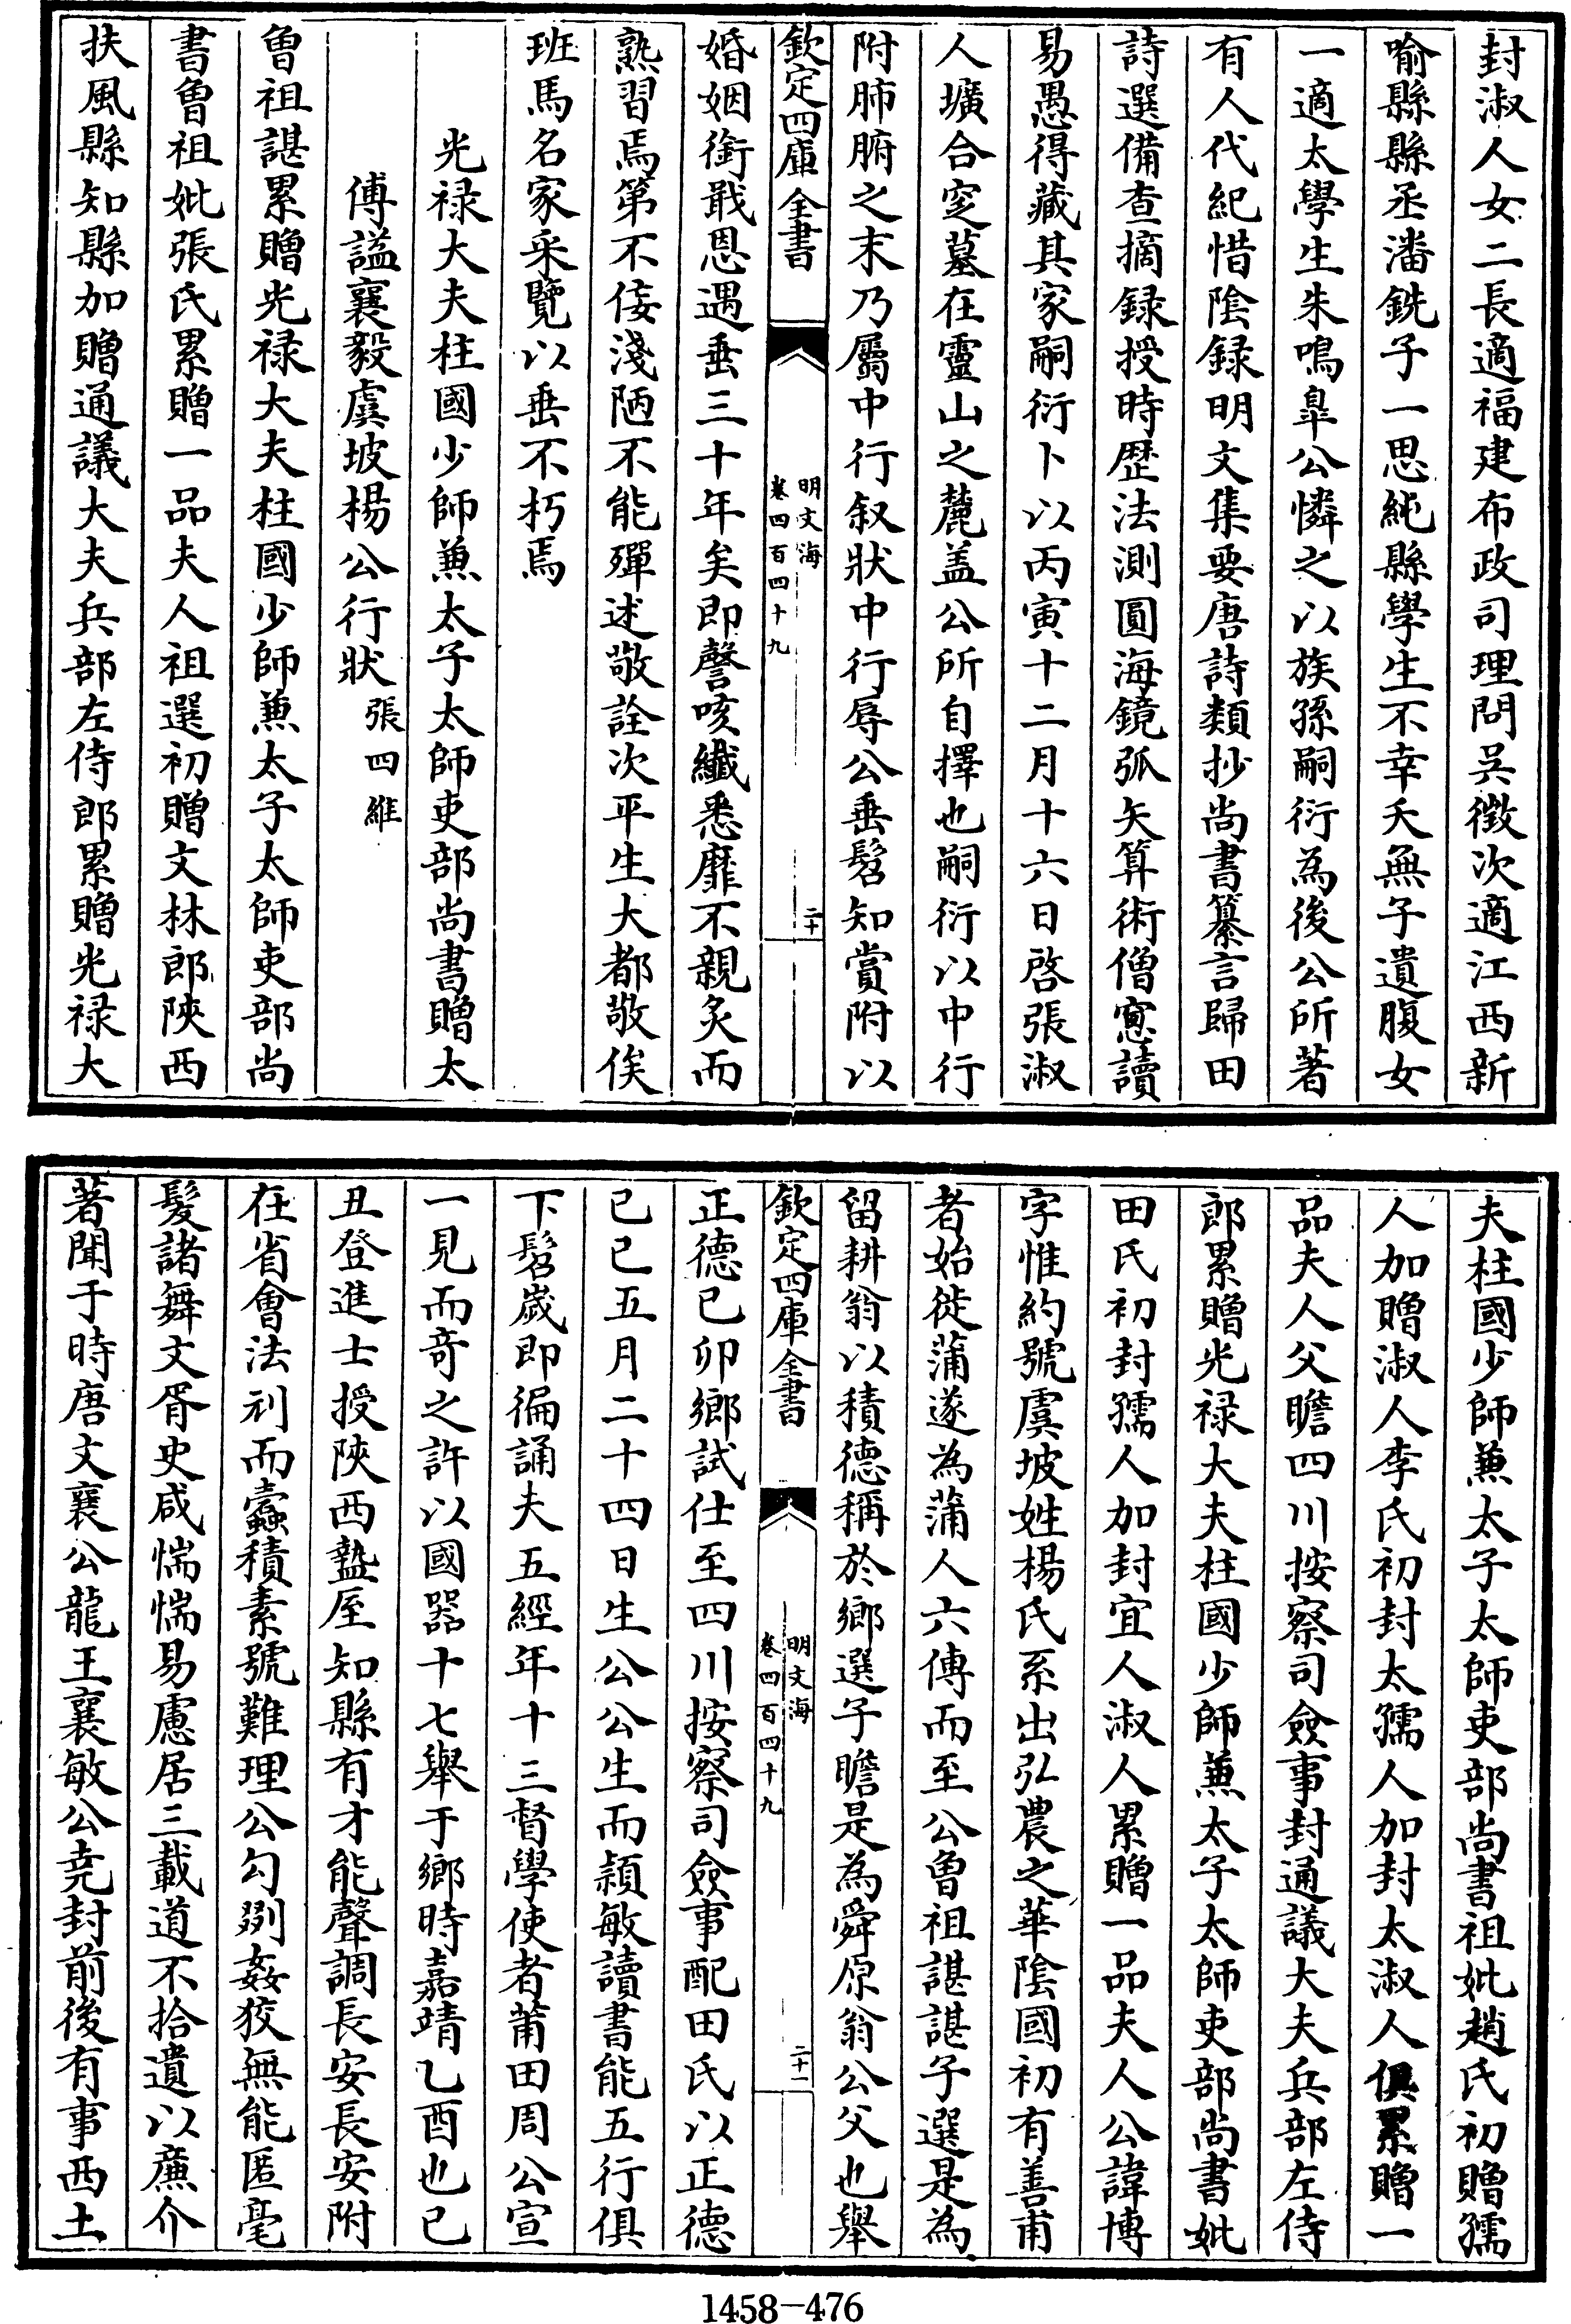 封淑人女二長適福建布政司理問吳徵次適江西新
喻縣縣丞潘銑子一思純縣學生不幸夭無子遺腹女
一適太學生朱鳴臯公憐之以族孫嗣衍為後公所著
有人代紀惜隂録明文集要唐詩類抄尚書纂言歸田
詩選備查摘録授時歴法測圓海鏡弧矢算術僧窓讀
易愚得藏其家嗣衍卜以丙寅十二月十六日啓張淑
人壙合窆墓在靈山之麓盖公所自擇也嗣衍以中行
附肺腑之末乃屬中行叙狀中行辱公垂髫知賞附以
欽定四庫全書
明文海
卷四百四十九
二十
婚姻銜戢恩遇垂三十年矣即謦咳纎悉靡不親炙而
熟習焉第不佞淺陋不能殫述敬詮次平生大都敬俟
班馬名家采覽以垂不朽焉
光禄大夫柱國少師兼太子太師吏部尚書贈太
傅謚襄毅虞坡楊公行狀張四維
曾祖諶累贈光禄大夫柱國少師兼太子太師吏部尚
書曾祖妣張氏累贈一品夫人祖選初贈文林郎陜西
扶風縣知縣加贈通議大夫兵部左侍郎累贈光禄大
夫柱國少師兼太子太師吏部尚書祖妣趙氏初贈孺
人加贈淑人李氏初封太孺人加封太淑人俱累贈一
品夫人父瞻四川按察司僉事封通議大夫兵部左侍
郎累贈光禄大夫柱國少師兼太子太師吏部尚書妣
田氏初封孺人加封宜人淑人累贈一品夫人公諱博
字惟約號虞坡姓楊氏系出弘農之華隂國初有善甫
者始徙蒲遂為蒲人六傳而至公曾祖諶諶子選是為
留耕翁以積德稱於鄉選子瞻是為舜原翁公父也舉
欽定四庫全書
明文海
卷四百四十九
二十一
正德己卯鄉試仕至四川按察司僉事配田氏以正德
己巳五月二十四日生公公生而頴敏讀書能五行俱
下髫嵗即徧誦夫五經年十三督學使者莆田周公宣
一見而竒之許以國器十七舉于鄉時嘉靖乙酉也已
丑登進士授陜西盩厔知縣有才能聲調長安長安附
在省會法刓而蠧積素號難理公勾剔姦狡無能匿毫
髪諸舞文胥史咸惴惴易慮居三載道不拾遺以亷介
著聞于時唐文襄公龍王襄敏公堯封前後有事西土
1458—476